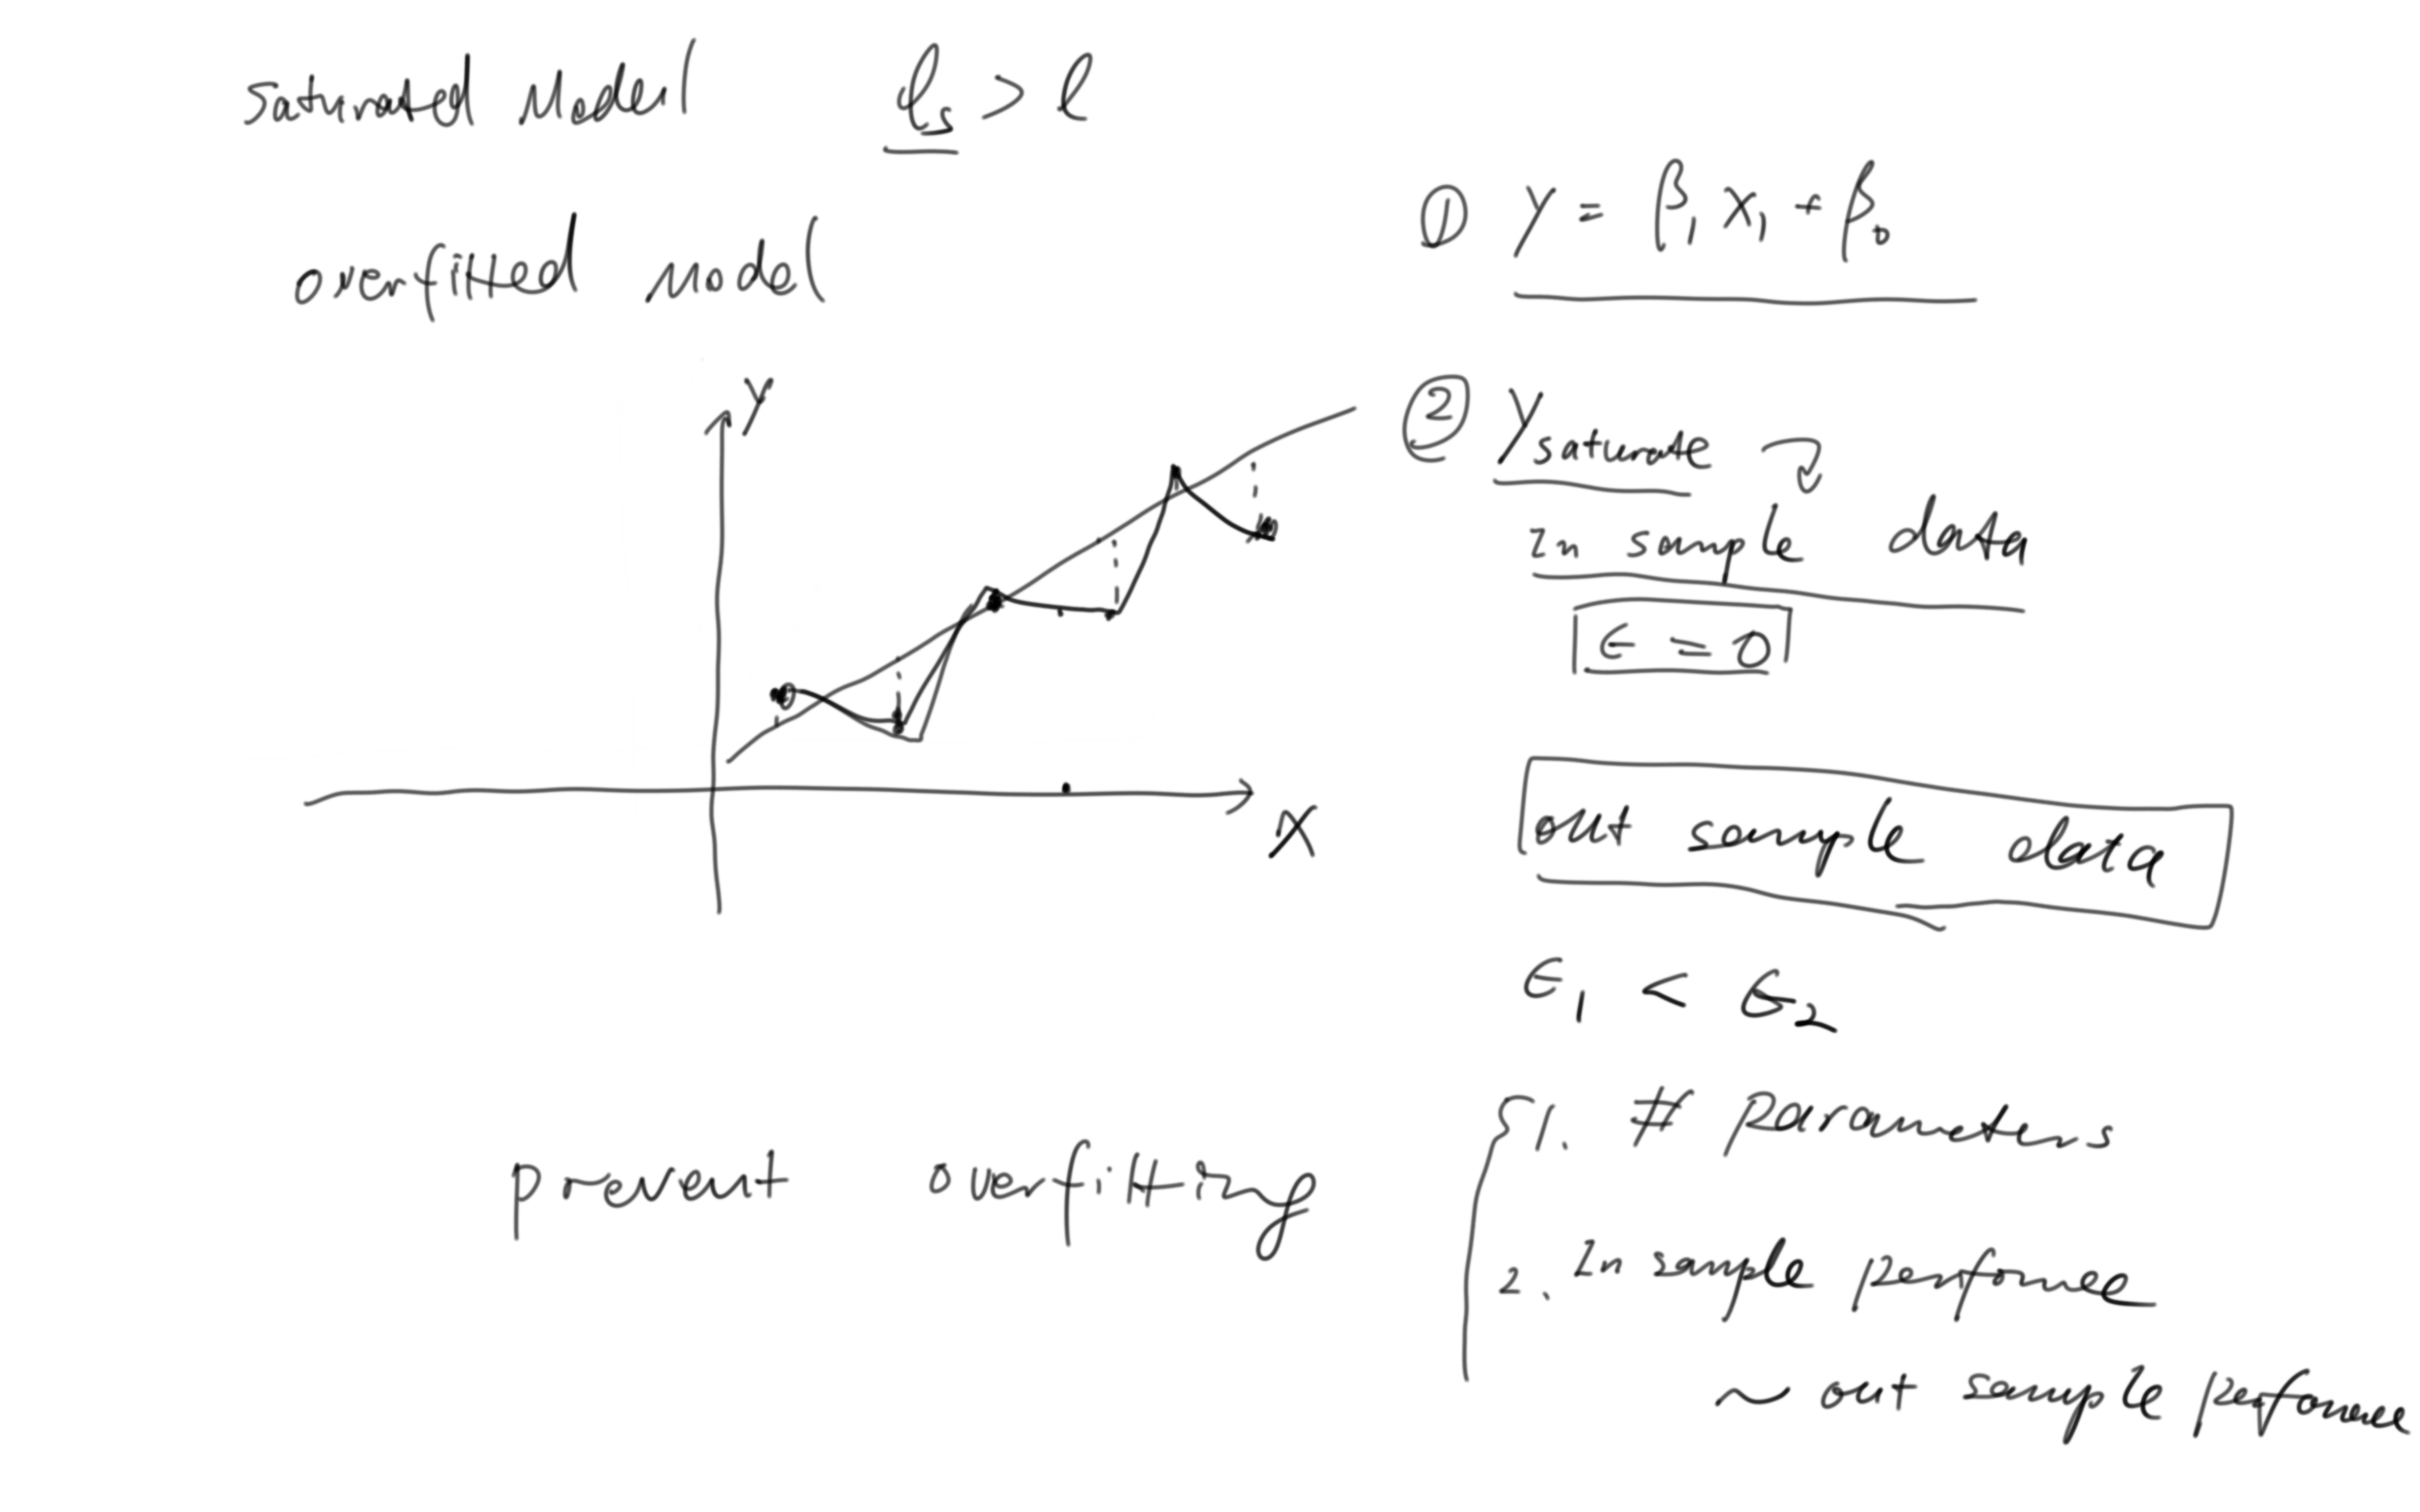 saturated Model   ℓs > ℓ
overfitted Model
① y = β₁ x₁ + β₀
② Ysaturate
In sample data
ϵ = 0
Y
X
out sample data
ϵ₁ < ϵ₂
prevent overfitting
1. # parameters
2. In sample performce
~ out sample performce